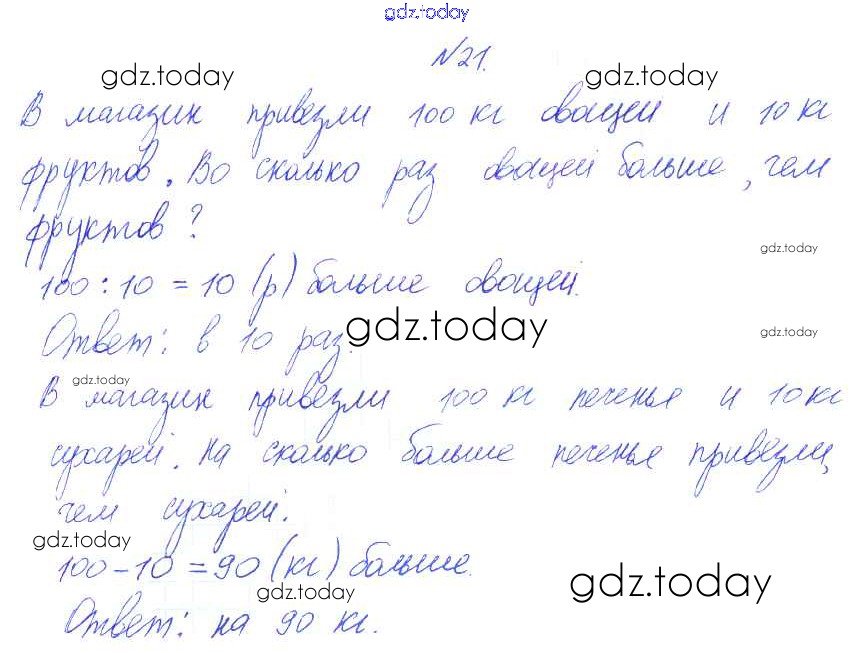 gdz.today
№21.
gdz.today gdz.today
В магазин привезли 100 кг овощей и 10 кг
фруктов. Во сколько раз овощей больше, чем
фруктов?
gdz.today
100 : 10 = 10 (р) больше овощей.
Ответ: в 10 раз.
gdz.today
gdz.today
gdz.today
В магазин привезли 100 кг печенья и 10 кг
сухарей. На сколько больше печенья привезли,
чем сухарей.
gdz.today
100 - 10 = 90 (кг) больше.
gdz.today gdz.today
Ответ: на 90 кг.